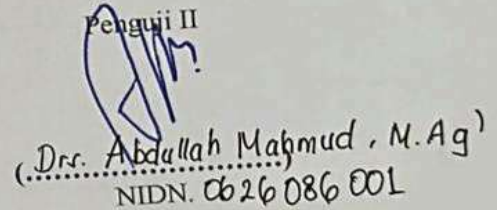 Penguji II
(Drs. Abdullah Mahmud, M.Ag)
NIDN. 0626086001